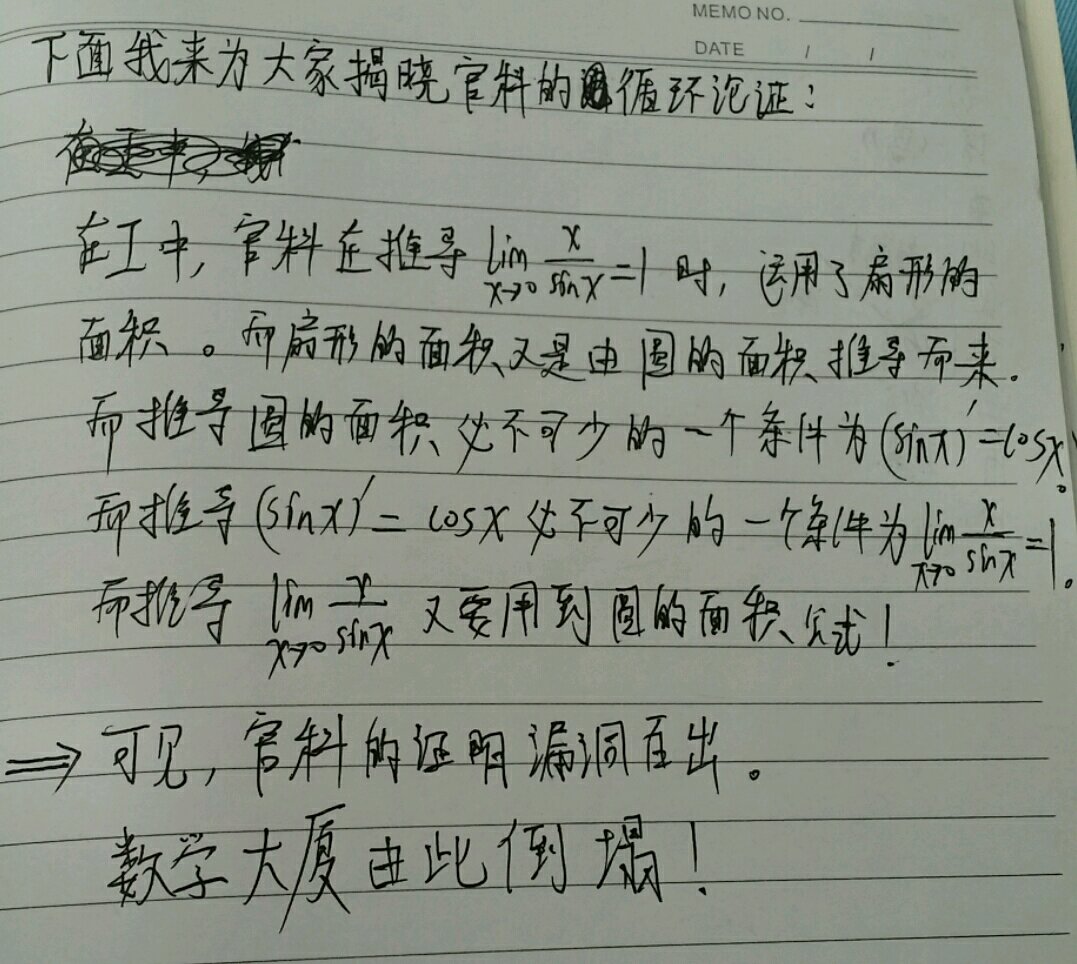 MEMO NO.
DATE / /
下面我来为大家揭晓官科的循环论证：
在工中，官科在推导 lim x→0 x/sinx =1 时，运用了扇形的
面积。而扇形的面积又是由圆的面积推导而来.
而推导圆的面积必不可少的一个条件为(sinx)′=cosx。
而推导(sinx)′= cosx必不可少的一个条件为 lim x→0 x/sinx =1。
而推导 lim x→0 x/sinx 又要用到圆的面积公式！
⇒ 可见，官科的证明漏洞百出。
数学大厦由此倒塌！